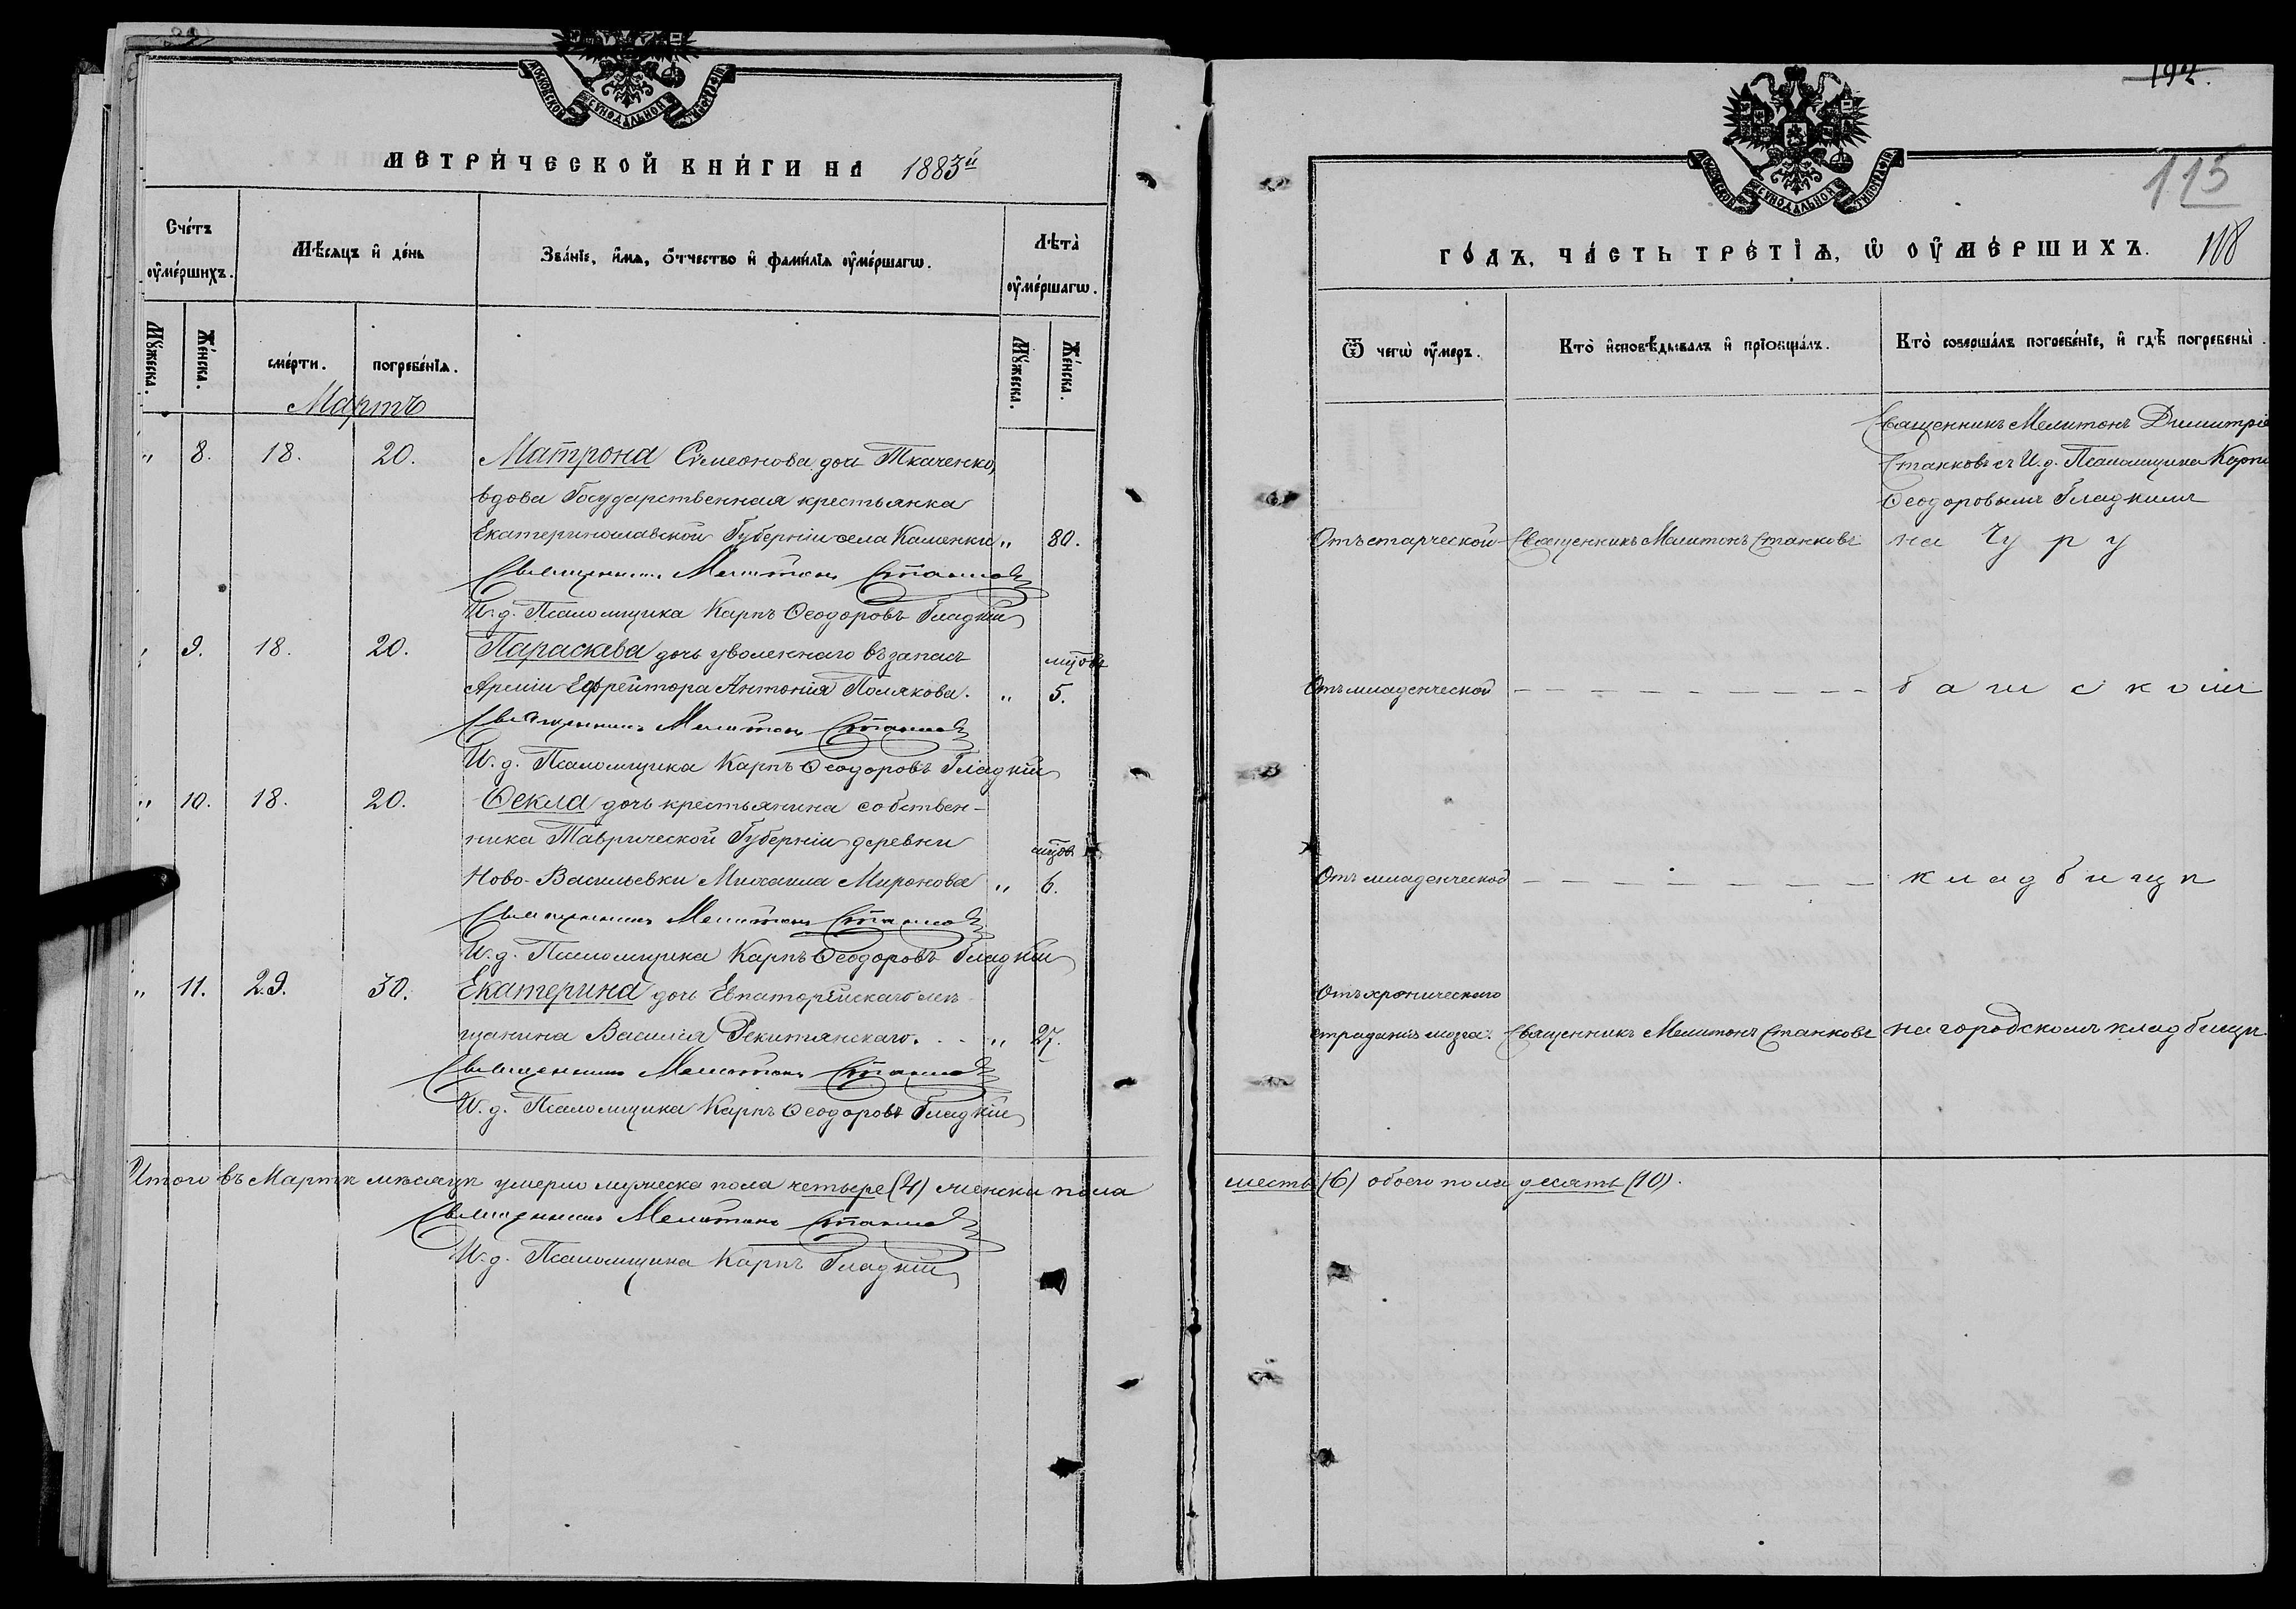 МЕТРИЧЕСКОЙ КНИГИ НА 1883й
Счетъ оумершихъ.
Мѣсяцъ и день
Званіе, имя, отчество и фамилія оумершагѡ.
Лѣта оумершагѡ.
Мужеска.
Женска.
смерти.
погребенія.
Мужеска.
Женска.
Мартъ
" 8. 18. 20. Матрона Сѵмеонова доч Ткаченко,
вдова Государственная крестьянка
Екатеринославской Губерніи села Каменки " 80.
Священникъ Мелитонъ Станковъ
И. д. Псаломщика Карпъ Ѳеодоровъ Гладкій
" 9. 18. 20. Параскева дочь уволеннаго въ запасъ
Арміи Ефрейтора Антонія Полякова. " мцовъ 5.
Священникъ Мелитонъ Станковъ
И. д. Псаломщика Карпъ Ѳеодоровъ Гладкій
" 10. 18. 20. Ѳекла дочь крестьянина собствен-
ника Таврической Губерніи деревни
Ново-Васильевки Михаила Миронова " мцовъ 6.
Священникъ Мелитонъ Станковъ
И. д. Псаломщика Карпъ Ѳеодоровъ Гладкій
" 11. 29. 30. Екатерина дочь Евпаторійскаго мѣ-
щанина Василія Рекитянскаго. . - " 27.
Священникъ Мелитонъ Станковъ
И. д. Псаломщика Карпъ Ѳеодоровъ Гладкій
Итого въ Мартѣ мѣсяцѣ умерло мужеска пола четыре (4) женска пола
Священникъ Мелитонъ Станковъ
И. д. Псаломщика Карпъ Гладкій
МОСКОВСКОЙ СѴНОДАЛЬНОЙ ТИПОГРАФІИ
115
108
ГОДЪ, ЧАСТЬ ТРЕТІЯ, Ѡ ОУМЕРШИХЪ.
Ѿ чегѡ оумеръ.
Кто исповѣдывалъ и пріобщалъ.
Кто совершалъ погребеніе, и гдѣ погребены.
Священникъ Мелитонъ Димитріе
Станковъ съ И. д. Псаломщика Карп
Ѳеодоровымъ Гладкимъ
Отъ старческой Священникъ Мелитонъ Станковъ на Чуру
Отъ младенческой — — — — — — — — башскомъ
Отъ младенческой — — — — — — — — кладбищѣ
Отъ хроническаго
страданія мозга. Священникъ Мелитонъ Станковъ на городскомъ кладбищѣ
шесть (6) обоего пола десять (10).